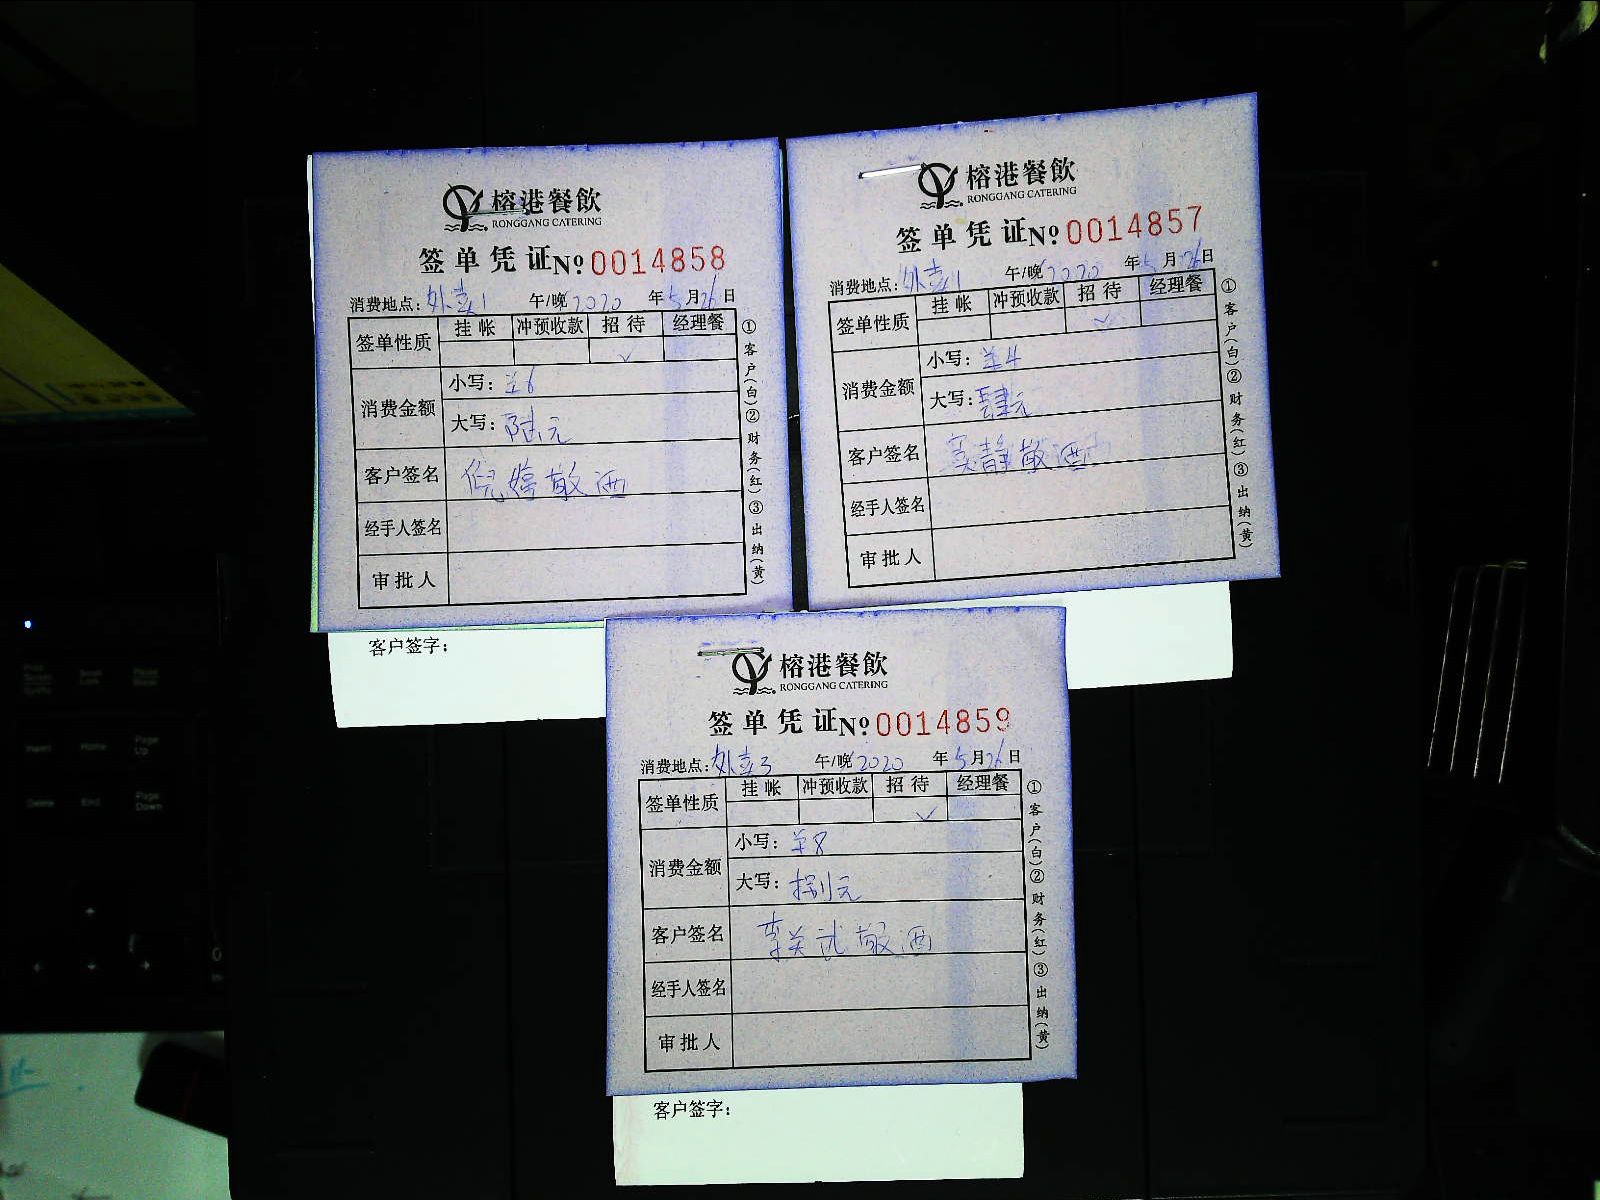 榕港餐飲
RONGGANG CATERING
签单凭证 № 0014858
消费地点: 外卖1 午/晚 2020 年 5 月 26 日
签单性质 挂帐 冲预收款 招待 经理餐
✓
消费金额
小写: 羊6
大写: 陆元
客户签名 倪婷敬酒
经手人签名
审批人
①客户(白)②财务(红)③出纳(黄)
客户签字:
榕港餐飲
RONGGANG CATERING
签单凭证 № 0014857
消费地点: 外卖1 午/晚 2020 年 5 月 26 日
签单性质 挂帐 冲预收款 招待 经理餐
✓
消费金额
小写: 羊4
大写: 肆元
客户签名 吴静敬酒
经手人签名
审批人
①客户(白)②财务(红)③出纳(黄)
榕港餐飲
RONGGANG CATERING
签单凭证 № 0014859
消费地点: 外卖3 午/晚 2020 年 5 月 26 日
签单性质 挂帐 冲预收款 招待 经理餐
✓
消费金额
小写: 羊8
大写: 捌元
客户签名 敬酒
经手人签名
审批人
①客户(白)②财务(红)③出纳(黄)
客户签字:
Insert Home Page Up
Delete End Page Down